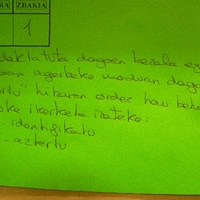 RA ZBAKIA
1
daktatuta dagoen bezala eg
agertzeko moduan dago
rtu" hitzaren ordez hau beha
ke ikerketa izateko:
identifikatu
- aztertu